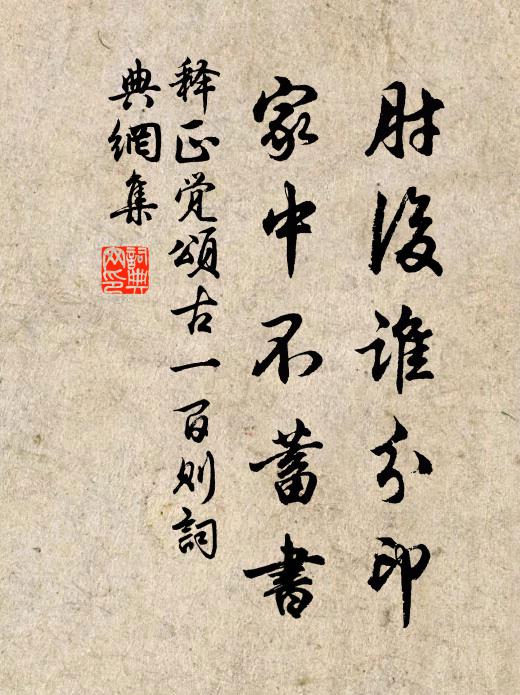 肘後誰分印
家中不蓄書
释正觉頌古一百则詞
典網集
詞典